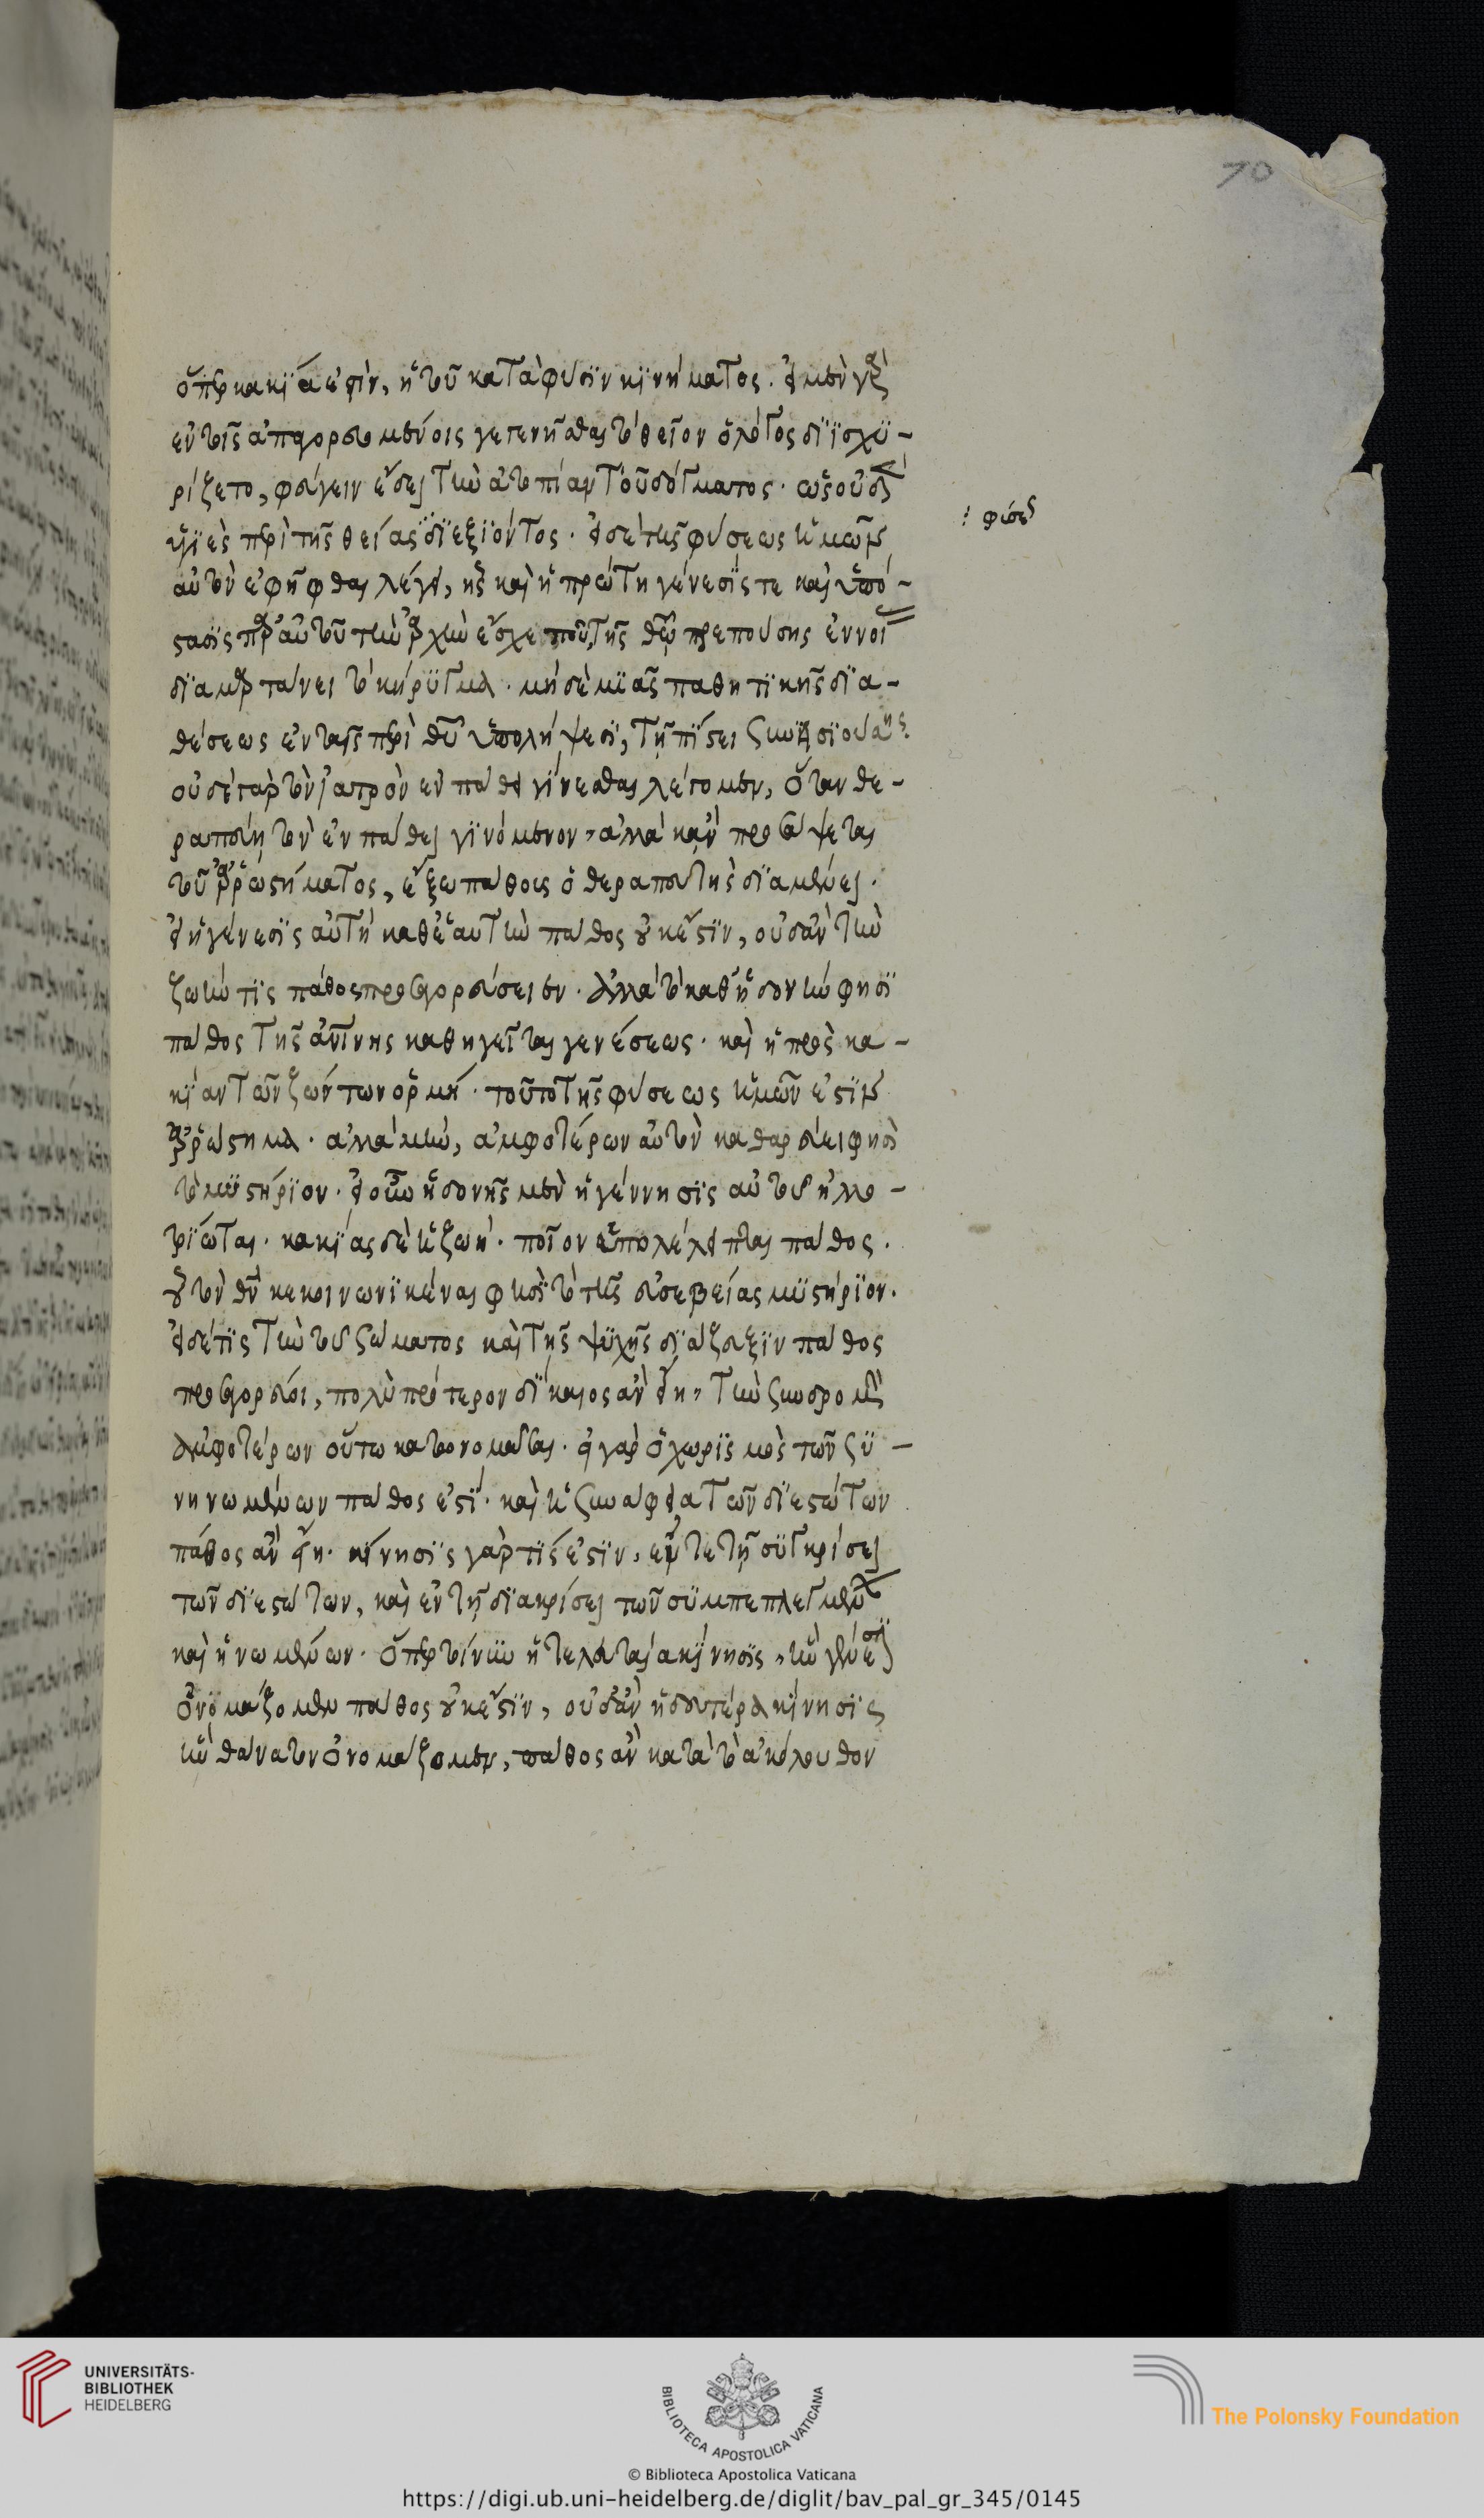 70
ὅπερ κακία ἐστὶν, ἢ τοῦ κατὰ φύσιν κινήματος. εἰ μὲν γὰρ
ἐν τοῖς ἀπηγορευμένοις γεγενῆσθαι τὸ θεῖον ὁ λόγος διϊσχυ-
ρίζετο, φεύγειν ἔδει τὴν ἀτοπίαν τοῦ δόγματος. ὡς οὐδὲν
ὑγιὲς περὶ τῆς θείας διεξιόντος. εἰ δὲ τῆς φύσεως ἡμῶν
αὐτὸν ἐφῆφθαι λέγει, ἧς καὶ ἡ πρώτη γένεσίς τε καὶ ὑπό-
στασις παρ' αὐτοῦ τὴν ἀρχὴν ἔσχε ποῦ τῆς θεῷ πρεπούσης ἐννοί
διαμαρτάνει τὸ κήρυγμα. μηδεμιᾶς παθητικῆς δια-
θέσεως ἐν ταῖς περὶ θεοῦ ὑπολήψεσι, τῇ πίστει συνεισιούσης
οὐδὲ γὰρ τὸν ἰατρὸν ἐν πάθει γίνεσθαι λέγομεν, ὅταν θε-
ραπεύῃ τὸν ἐν πάθει γινόμενον, ἀλλὰ κἂν προσάψεται
τοῦ ἀρρωστήματος, ἔξω πάθους ὁ θεραπευτὴς διαμένει.
εἰ ἡ γένεσις αὐτὴ καθ' ἑαυτὴν πάθος οὐκ ἔστιν, οὐδ' ἂν τὴν
ζωήν τις πάθος προσαγορεύσειεν. ἀλλὰ τὸ καθ' ἡδονήν φησι
πάθος τῆς ἀνθρωπίνης καθηγεῖται γενέσεως. καὶ ἡ πρὸς κα-
κίαν τῶν ζώντων ὁρμή. τοῦτο τῆς φύσεως ἡμῶν ἐστὶν
ἀρρώστημα. ἀλλὰ μὴν, ἀμφοτέρων αὐτὸν καθαρεύει φησὶ
τὸ μυστήριον. εἰ οὖν ἡδονῆς μὲν ἡ γέννησις αὐτοῦ ἠλλο-
τρίωται. κακίας δὲ ἡ ζωή. ποῖον ὑπολέλειπται πάθος.
οὗ τὸν θεὸν κεκοινωνικέναι φησὶ τὸ τῆς εὐσεβείας μυστήριον.
εἰ δέ τις τὴν τοῦ σώματος καὶ τῆς ψυχῆς διάζευξιν πάθος
προσαγορεύοι, πολὺ πρότερον δίκαιος ἂν εἴη, τὴν συνδρομὴν
ἀμφοτέρων οὕτω κατονομάσαι. εἰ γὰρ ὁ χωρισμὸς τῶν συ-
νηνωμένων πάθος ἐστί. καὶ ἡ συνάφεια τῶν διεστώτων
πάθος ἂν εἴη. κίνησις γάρ τίς ἐστιν, ἔν τε τῇ συγκρίσει
τῶν διεστώτων, καὶ ἐν τῇ διακρίσει τῶν συμπεπλεγμένων
καὶ ἡνωμένων. ὅπερ τοίνυν ἡ τελευταία κίνησις, ἣν γένεσιν
ὀνομάζομεν πάθος οὐκ ἔστιν, οὐδ' ἂν ἡ δευτέρα κίνησις
ἣν θάνατον ὀνομάζομεν, πάθος ἂν κατὰ τὸ ἀκόλουθον
UNIVERSITÄTS-
BIBLIOTHEK
HEIDELBERG
BIBLIOTECA APOSTOLICA VATICANA
The Polonsky Foundation
© Biblioteca Apostolica Vaticana
https://digi.ub.uni-heidelberg.de/diglit/bav_pal_gr_345/0145